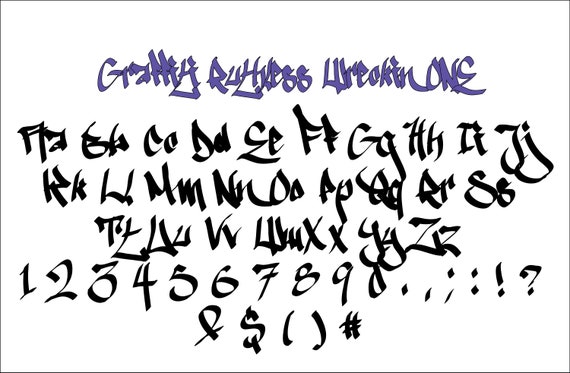 Graffiti Ruthless Wreckin ONE
Aa Bb Cc Dd Ee Ff Gg Hh Ii Jj
Kk Ll Mm Nn Oo Pp Qq Rr Ss
Tt Uu Vv Ww Xx Yy Zz
1 2 3 4 5 6 7 8 9 0 . , ; : ! ?
& $ ( ) #